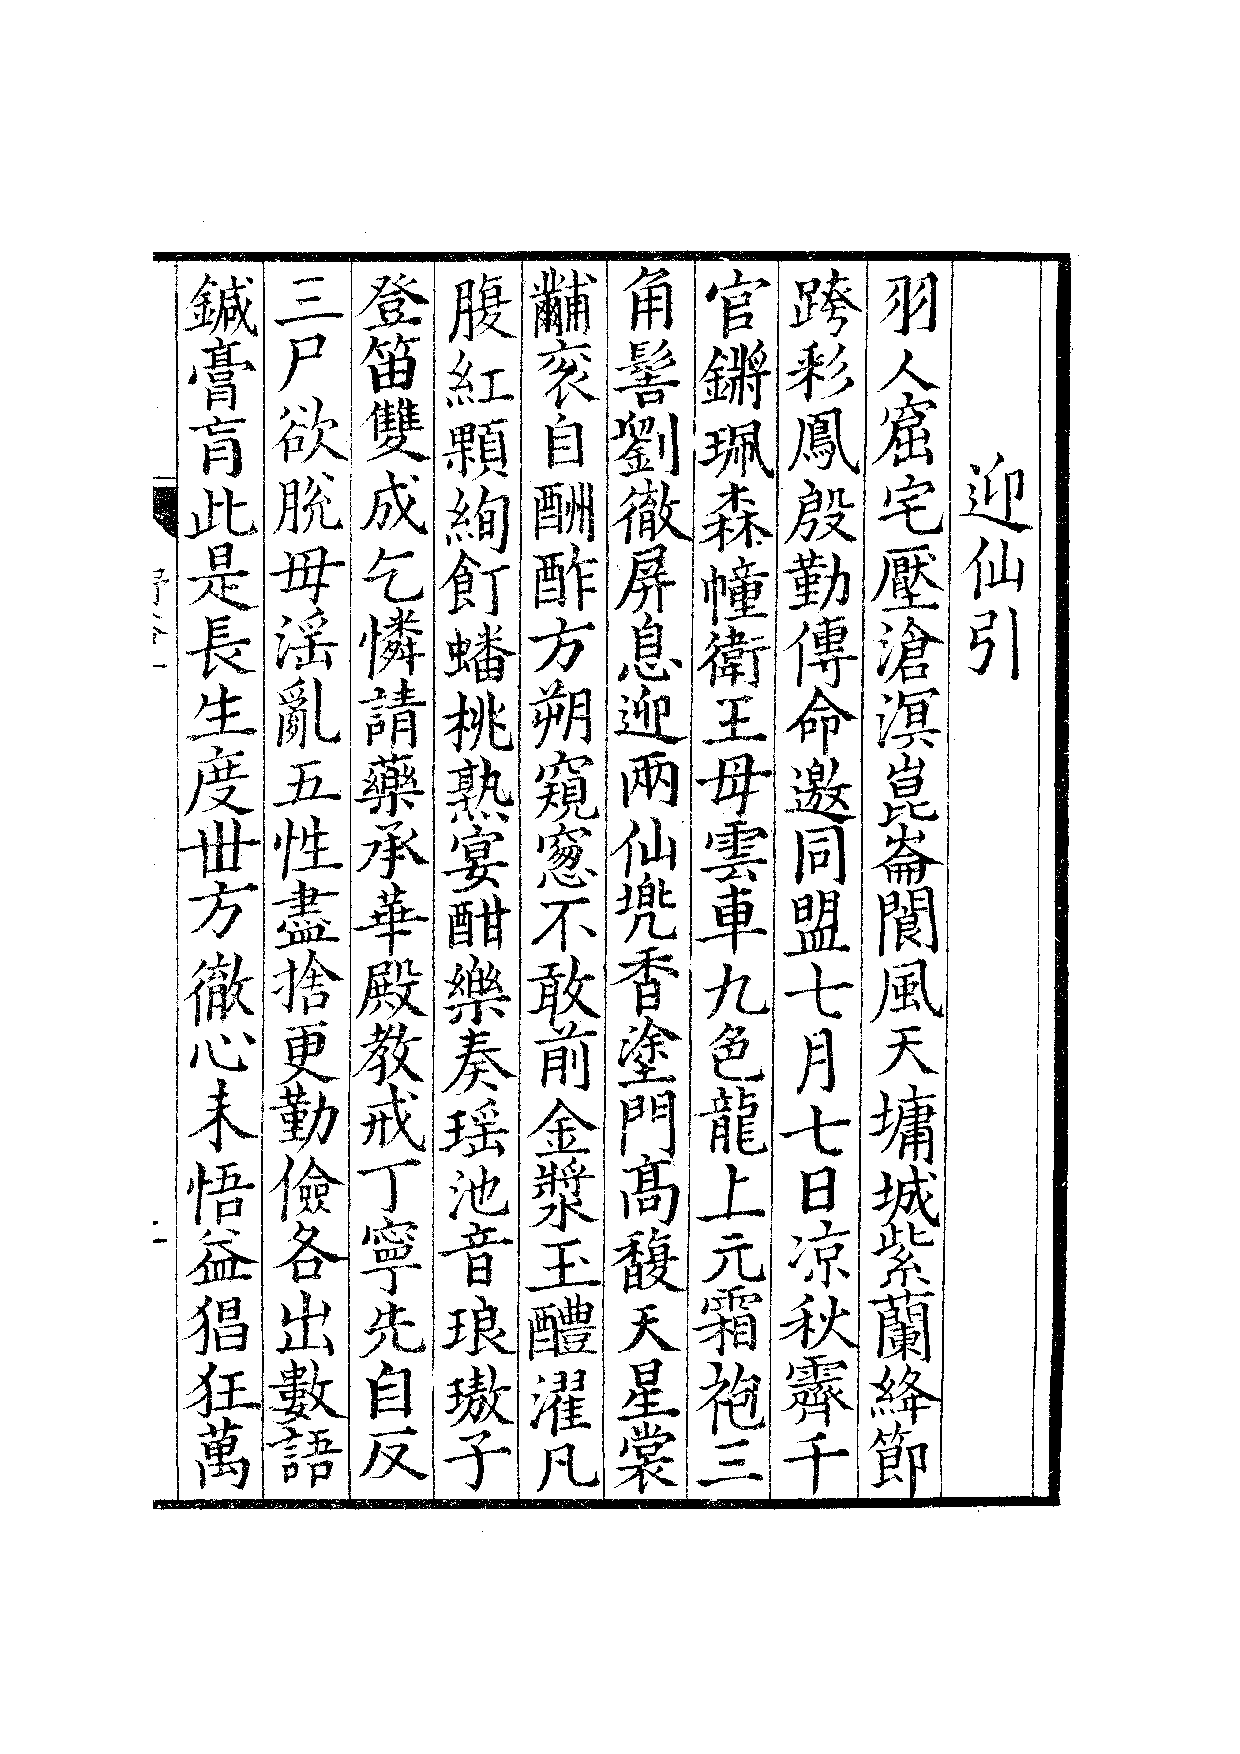 迎仙引
羽人窟宅壓滄溟崑崙閬風天墉城紫蘭絳節
跨彩鳳殷勤傳命邀同盟七月七日凉秋霽千
官鏘珮森幢衛王母雲車九色龍上元霜袍三
角髻劉徹屏息迎兩仙兠香塗門髙馥天星裳
黼衮自酬酢方朔窺窻不敢前金漿玉醴濯凡
腹紅顆絢飣蟠桃熟宴酣樂奏瑶池音琅璈子
登笛雙成乞憐請藥承華殿教戒丁寧先自反
三尸欲脫毋滛亂五性盡捨更勤儉各出數語
鍼膏肓此是長生度丗方徹心未悟益猖狂萬